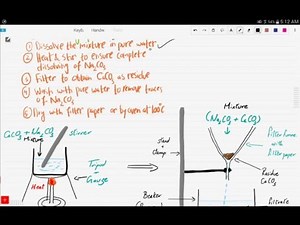 5:12 AM
① Dissolve the mixture in pure water
② Heat & stir to ensure complete
dissolving of Na₂CO₃
③ Filter to obtain CaCO₃ as residue
④ Wash with pure water to remove traces
of Na₂CO₃
⑤ Dry with filter paper or by oven at 100°C
CaCO₃ + Na₂CO₃
Mixture
stirrer
Tripod
+
Gauze
Heat
Stand
+
Clamp
Mixture
(Na₂CO₃ + CaCO₃)
Filter funnel
with
filter paper
Residue
CaCO₃
Beaker
Filtrate